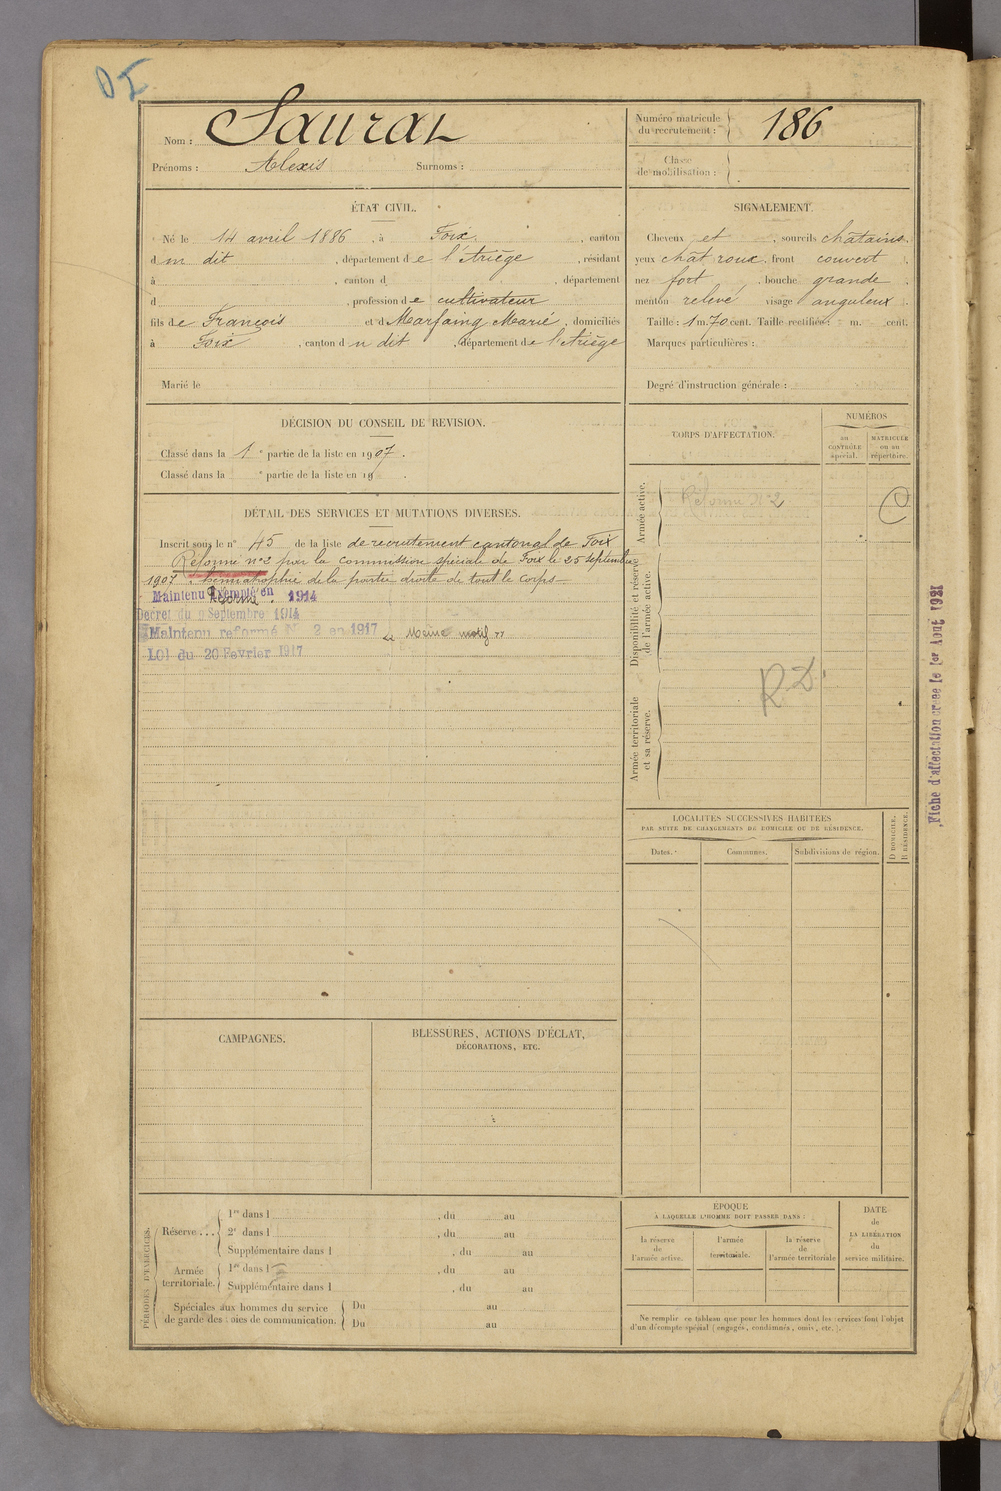 DI
Nom : Saurat
Prénoms : Alexis Surnoms :
Numéro matricule
du recrutement : 186
Classe
de mobilisation :
ÉTAT CIVIL.
Né le 14 avril 1886, à Foix, canton
du dit, département de l'Ariège, résidant
à , canton d , département
d , profession de cultivateur
fils de François et d Marfaing Marie, domiciliés
à Foix, canton du dit, département de l'Ariège
Marié le
SIGNALEMENT.
Cheveux et , sourcils châtains,
yeux chât roux, front couvert,
nez fort, bouche grande,
menton relevé visage anguleux.
Taille : 1 m. 70 cent. Taille rectifiée : m. cent.
Marques particulières :
Degré d'instruction générale :
DÉCISION DU CONSEIL DE REVISION.
Classé dans la 1e partie de la liste en 1907.
Classé dans la e partie de la liste en 19 .
DÉTAIL DES SERVICES ET MUTATIONS DIVERSES.
Inscrit sous le n° 45 de la liste de recrutement cantonal de Foix
Réformé n°2 par la Commission spéciale de Foix le 25 septembre
1907. hémiatrophie de la partie droite de tout le corps—
Maintenu Exempté en 1914
Réformé
Décret du 9 Septembre 1914
Maintenu reformé N° 2 en 1917 " Même motif "
LOI du 20 Fevrier 1917
CORPS D'AFFECTATION.
NUMÉROS
au
CONTRÔLE
spécial.
MATRICULE
ou au
répertoire.
Armée active.
Réformé N°2
Disponibilité et réserve
de l'armée active.
Armée territoriale
et sa réserve.
R.D.
Fiche d'affectation créée le 1er Aout 1921
LOCALITÉS SUCCESSIVES HABITÉES
PAR SUITE DE CHANGEMENTS DE DOMICILE OU DE RÉSIDENCE.
Dates.
Communes.
Subdivisions de région.
D DOMICILE.
R RÉSIDENCE.
CAMPAGNES.
BLESSURES, ACTIONS D'ÉCLAT,
DÉCORATIONS, ETC.
PÉRIODES D'EXERCICES.
Réserve...
1re dans l , du au
2e dans l , du au
Supplémentaire dans l , du au
Armée
territoriale.
1re dans l , du au
Supplémentaire dans l , du au
Spéciales aux hommes du service
de garde des voies de communication.
Du au
Du au
ÉPOQUE
À LAQUELLE L'HOMME DOIT PASSER DANS :
la réserve
de
l'armée active.
l'armée
territoriale.
la réserve
de
l'armée territoriale
DATE
de
LA LIBÉRATION
du
service militaire.
Ne remplir ce tableau que pour les hommes dont les services font l'objet
d'un décompte spécial (engagés, condamnés, omis, etc.).